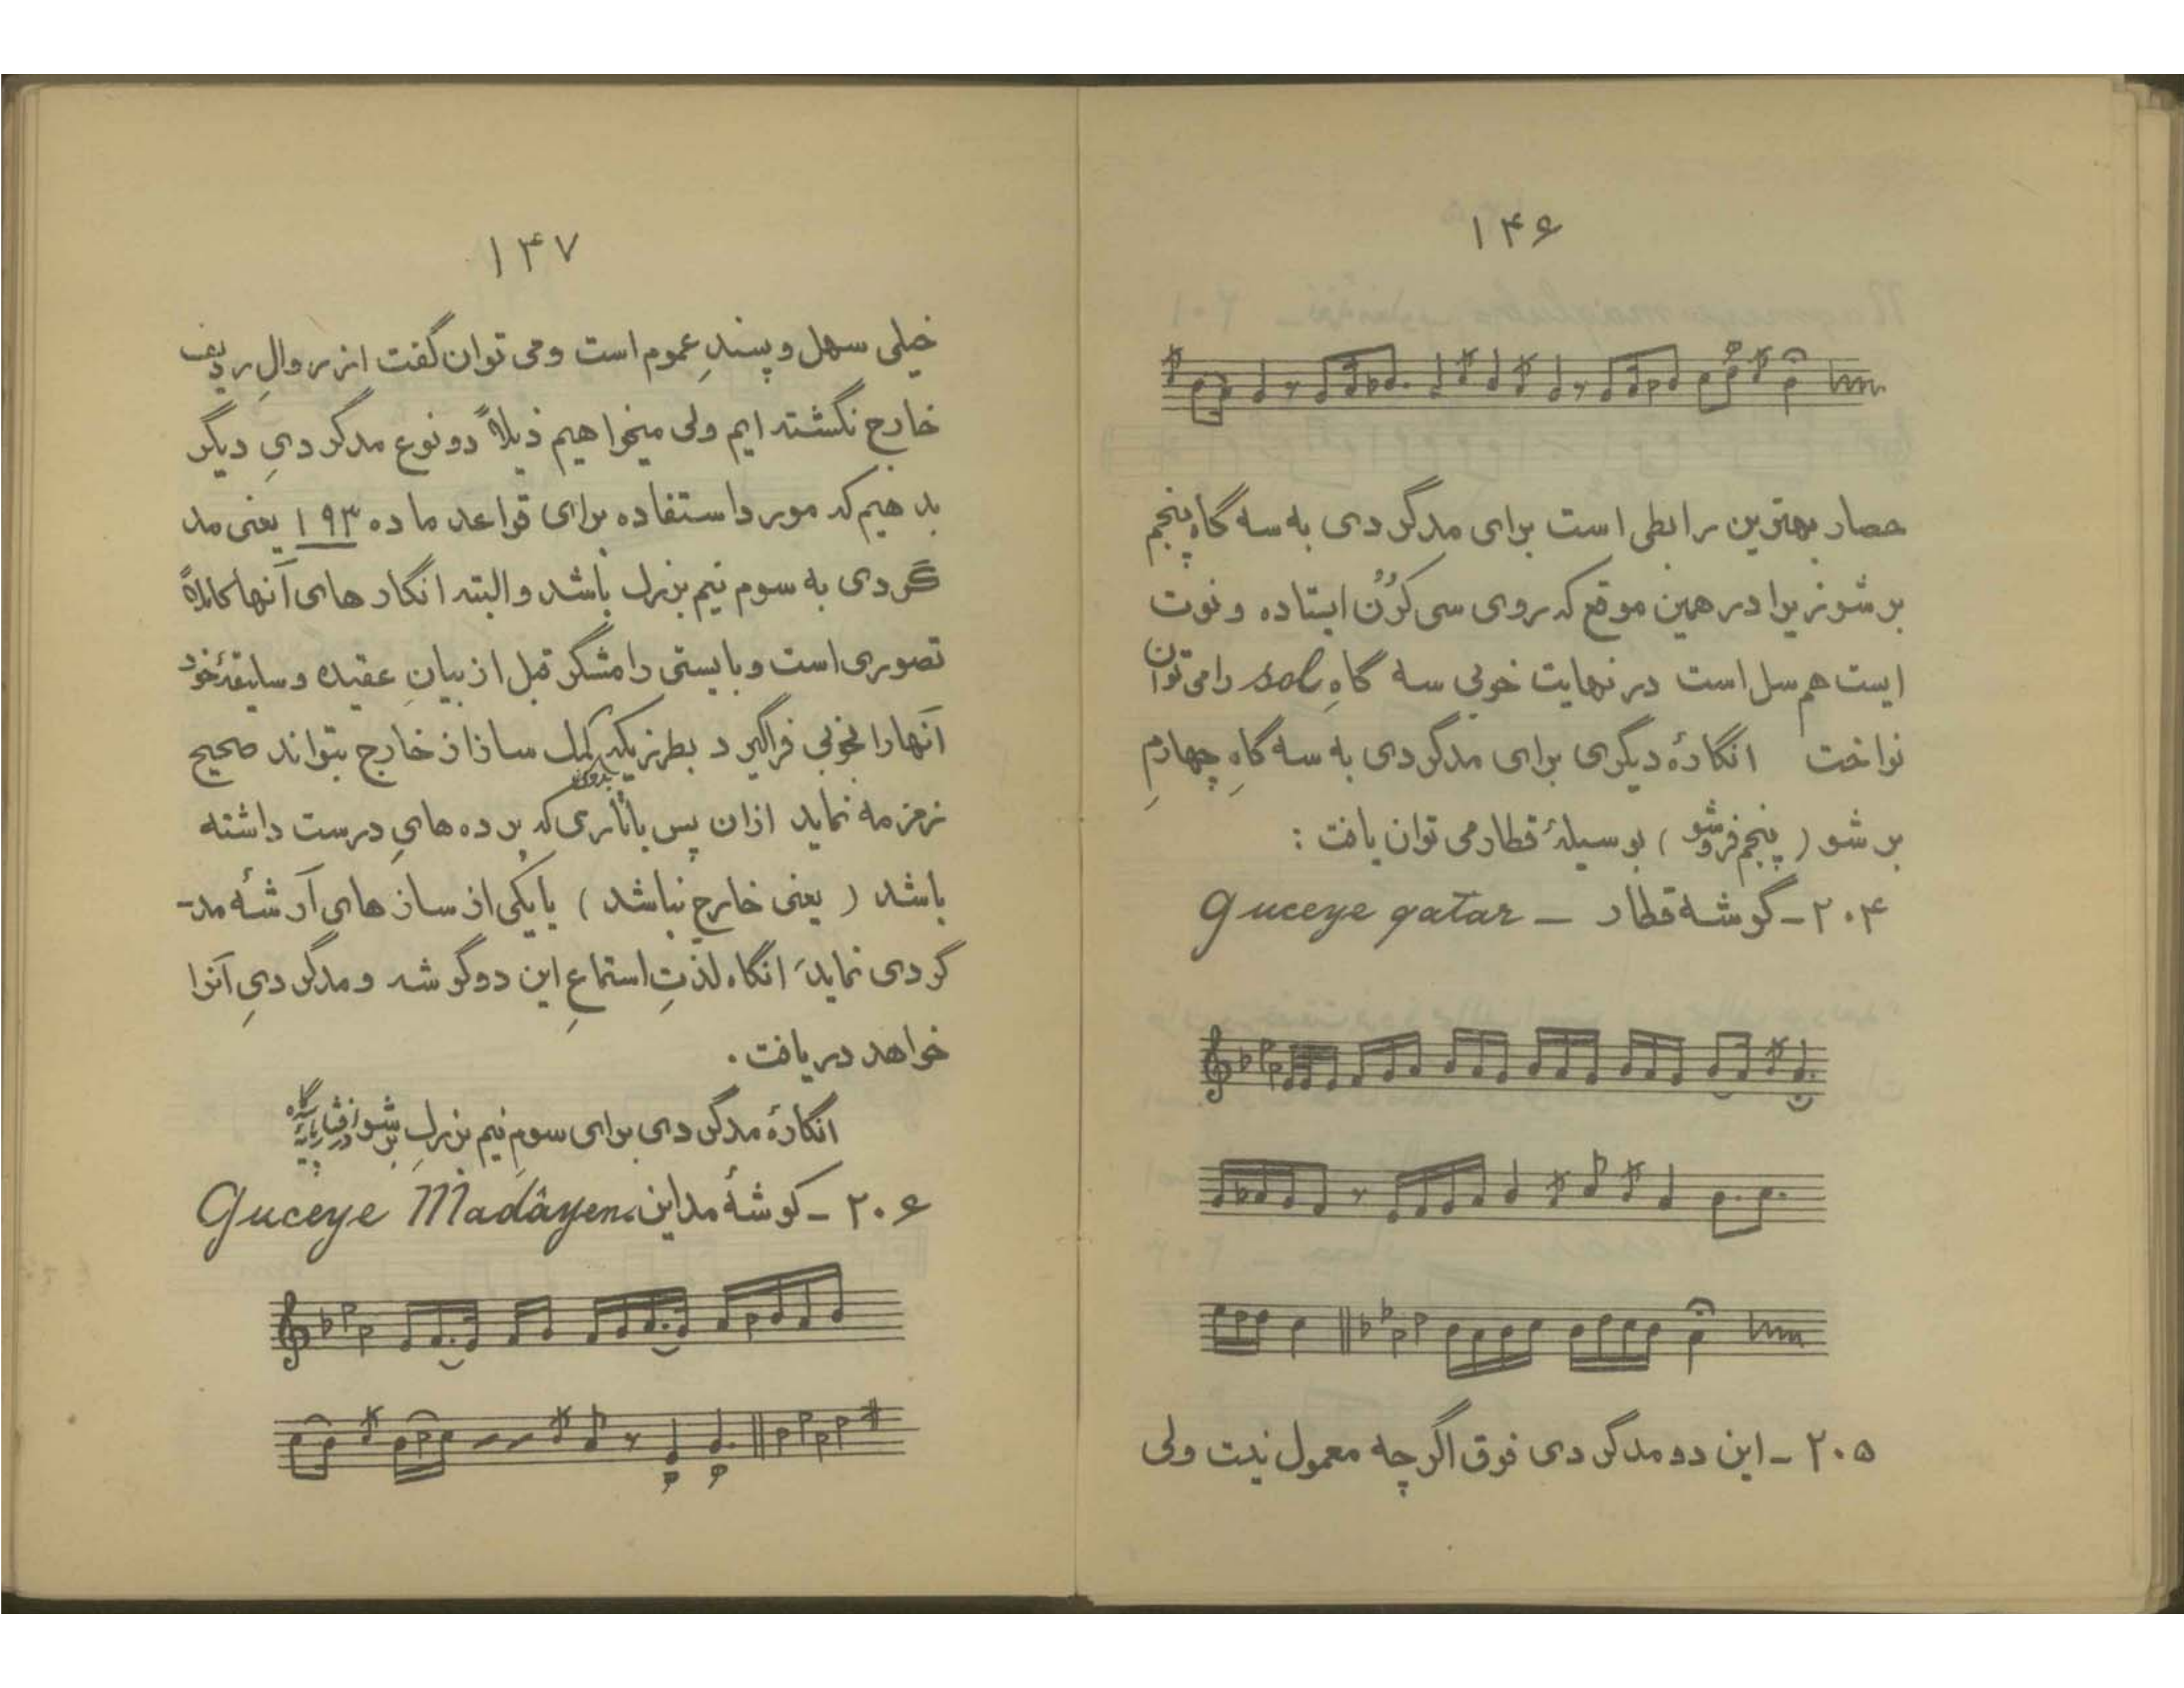 ۱۴۶
حصار بهترین رابطی است برای مدگردی به سه گاهِ پنجم
برشو زیرا در همین موقع که روی سی کُرُن ایستاده و نوت
ایست هم سل است در نهایت خوبی سه گاهِ sol را می توان
نواخت انگارهٔ دیگری برای مدگردی به سه گاهِ چهارمِ
برشو ( پنجم فروشو ) بوسیلهٔ قطار می توان یافت :
۲۰۴ - گوشه قطار - Guceye qatar
۲۰۵ - این دو مدگردی فوق اگرچه معمول نیست ولی
۱۴۷
خیلی سهل و پسندِ عموم است و می توان گفت از روالِ ردیف
خارج نگشته ایم ولی میخواهیم ذیلاً دو نوع مدگردیِ دیگر
بدهیم که مورد استفاده برای قواعد ماده ۱۹۳ یعنی مد
گردی به سوم نیم بزرگ باشد و البته انگارهای آنها کاملاً
تصوری است و بایستی رامشگر قبل از بیانِ عقیده و سلیقهٔ خود
آنها را بخوبی فراگیرد بطرزیکه بدون کمک ساز از خارج بتواند صحیح
زمزمه نماید ازان پس باتاری که پرده هایِ درست داشته
باشد ( یعنی خارج نباشد ) یا یکی از سازهایِ آرشه مد-
گردی نماید، انگاه لذتِ استماعِ این دو گوشه و مدگردیِ آنرا
خواهد دریافت .
انگارهٔ مدگردی برای سومِ نیم بزرگِ برشو از
۲۰۶ - گوشهٔ مداین Guceye Madâyen